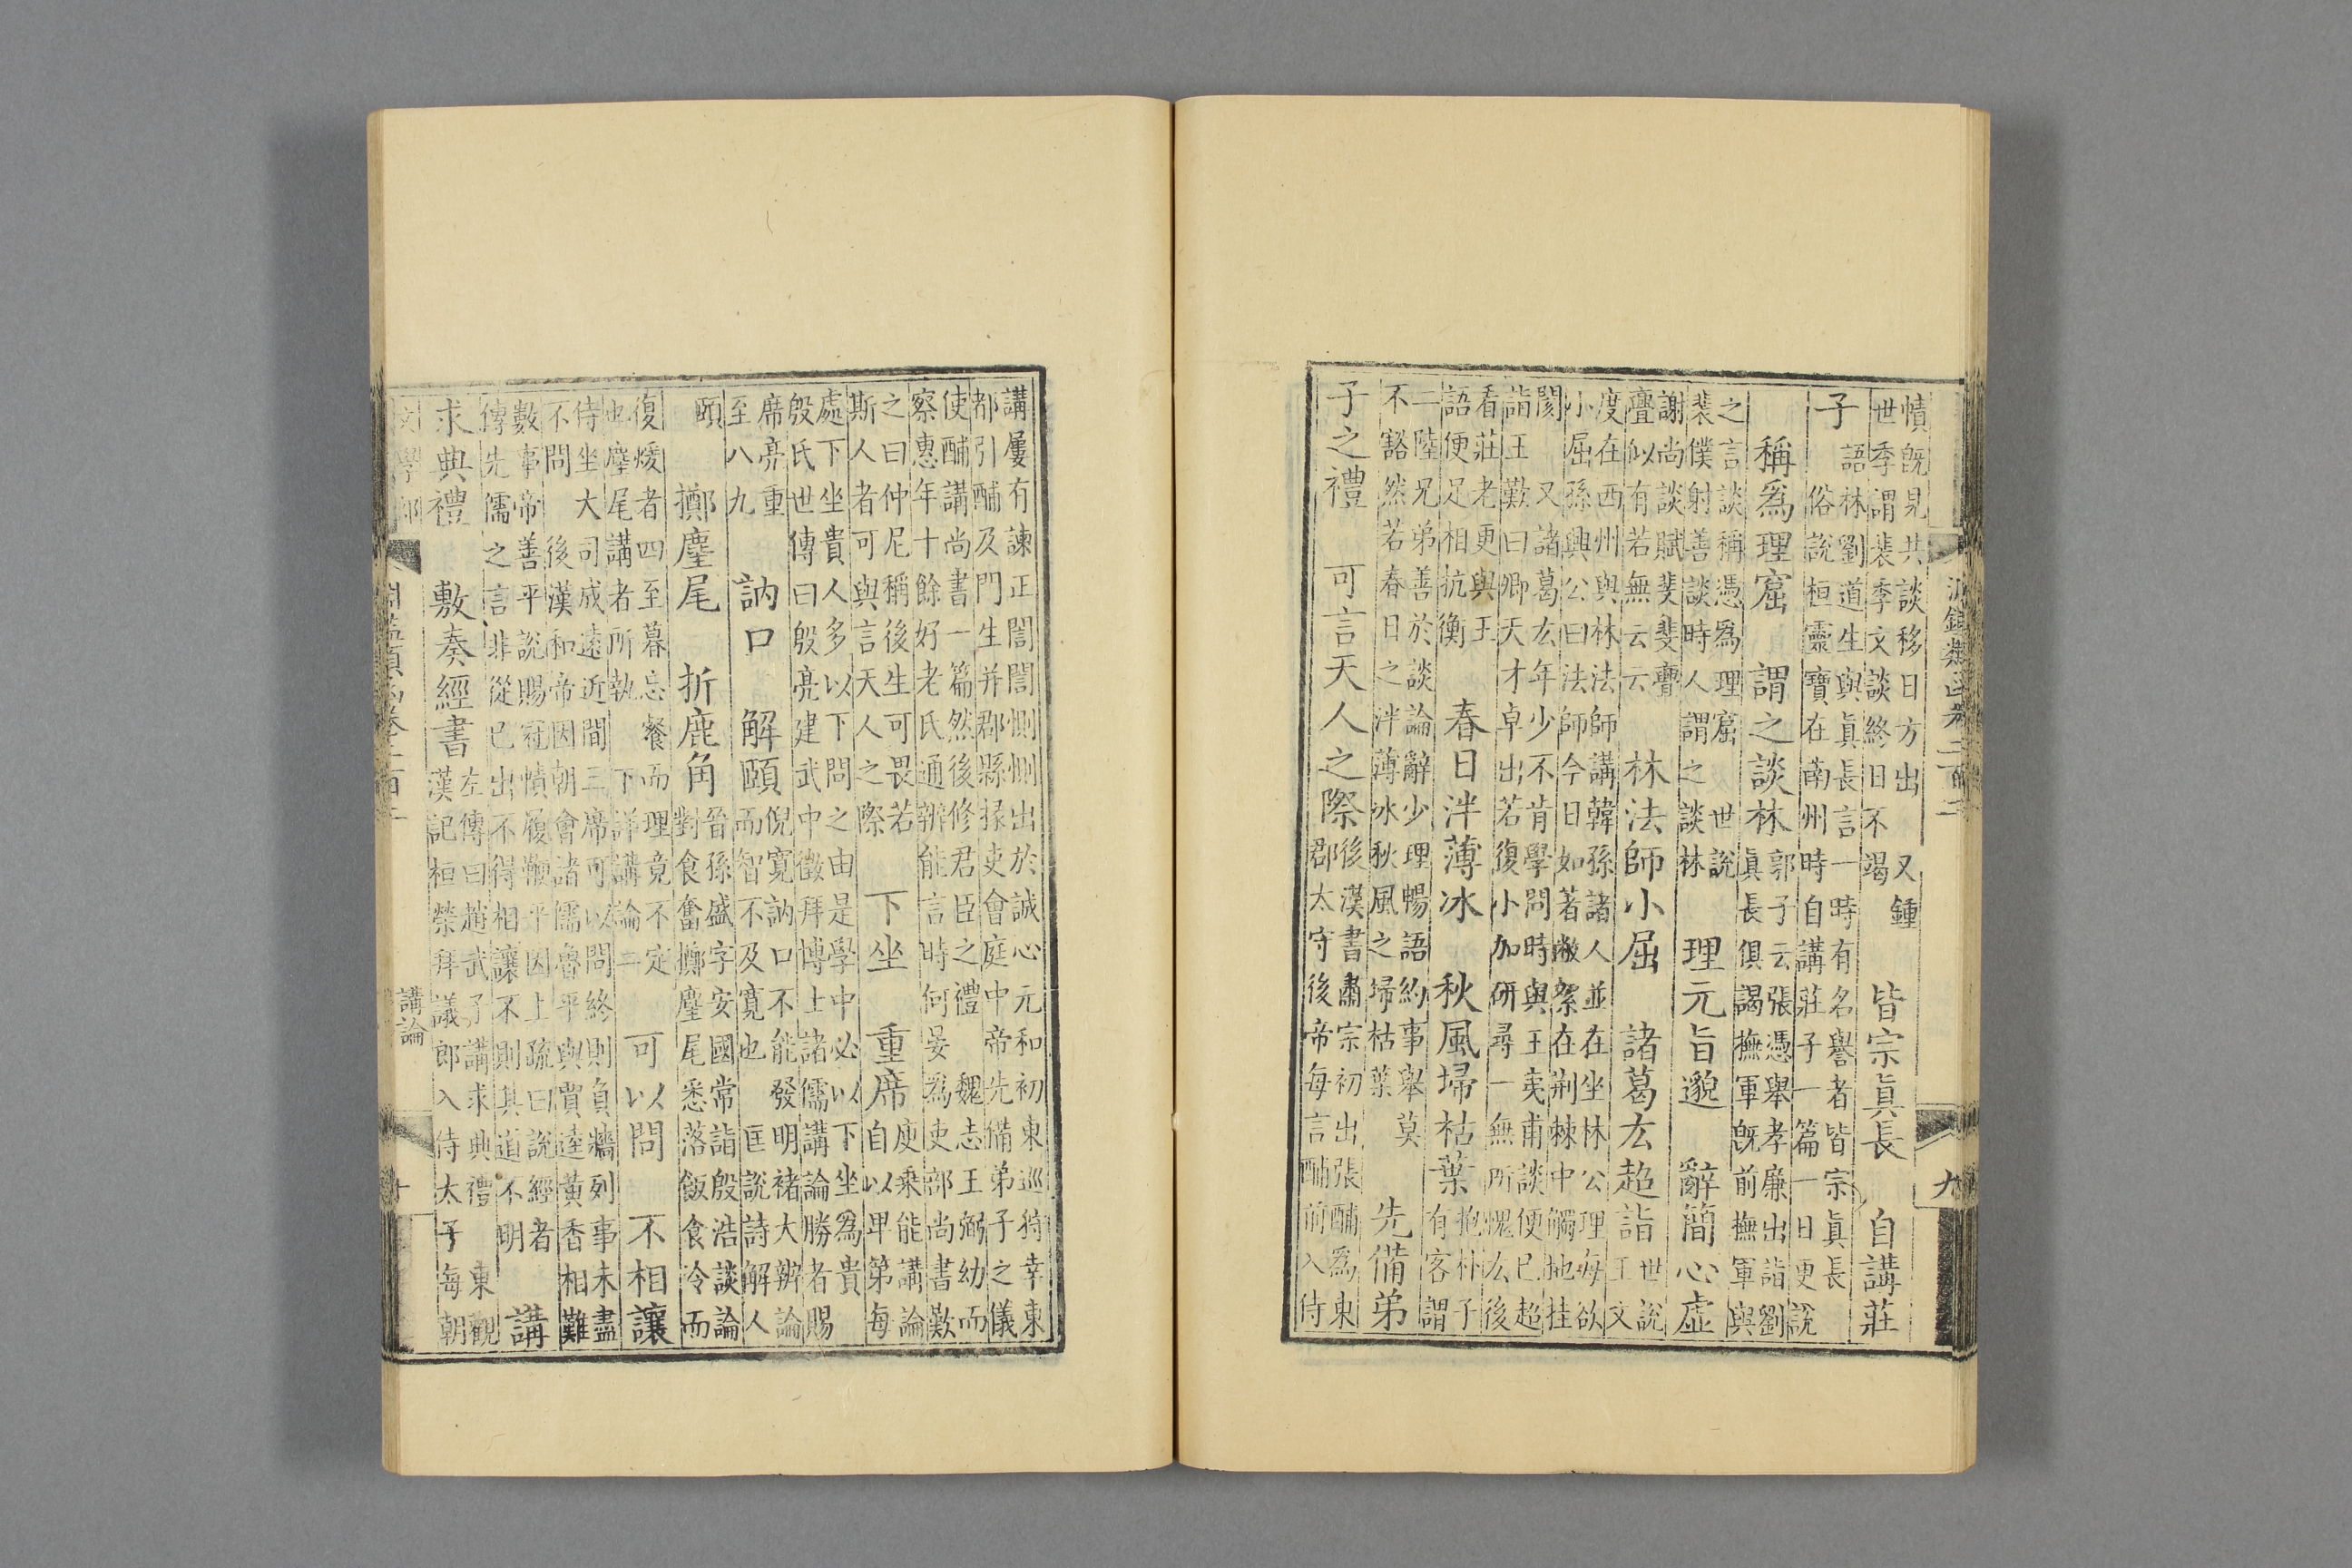 淵鑑類函卷二百二 九
幘旣見共談移日方出 又鍾
世季謂裴季文談終日不竭
皆宗眞長 自講莊
子
語林劉道生與眞長言一時有名譽者皆宗眞長
俗說桓靈寶在南州時自講莊子一篇一日更說
稱爲理窟 謂之談林
郭子云張憑舉孝廉出詣劉
眞長俱謁撫軍旣前撫軍與
之言談稱憑爲理窟 世說
裴僕射善談時人謂之談林
理元旨邈 辭簡心虛
謝尚談賦斐斐亹
亹似有若無云云
林法師小屈 諸葛厷超詣
世說
王文
度在西州與林法師講韓孫諸人並在坐林公理每欲
小屈孫興公曰法師今日如著敝絮在荆棘中觸地挂
閡 又諸葛厷年少不肯學問時與王夷甫談便已超
詣王歎曰卿天才卓出若復小加研尋一無所愧厷後
看莊老更與王
語便足相抗衡
春日泮薄冰 秋風埽枯葉
抱朴子
有客謂
二陸兄弟善於談論辭少理暢語約事舉莫
不豁然若春日之泮薄冰秋風之埽枯葉
先備弟
子之禮 可言天人之際
後漢書肅宗初出張酺爲東
郡太守後帝每言酺前入侍
講屢有諫正誾誾惻惻出於誠心元和初東巡狩幸東
都引酺及門生并郡縣掾吏會庭中帝先備弟子之儀
使酺講尚書一篇然後修君臣之禮 魏志王弼幼而
察惠年十餘好老氏通辨能言時何晏爲吏部尚書歎
之曰仲尼稱後生可畏若
斯人者可與言天人之際
下坐 重席
庾乘能講論
自以卑第每
處下坐貴人多以下問之由是學中必以下坐爲貴
殷氏世傳曰殷亮建武中徵拜博士諸儒講論勝者賜
席亮重
至八九
訥口 解頤
倪寬訥口不能發明褚大辨論
而智不及寬也 匡說詩解人
頤
擲麈尾 折鹿角
晉孫盛字安國常詣殷浩談論
對食奮擲麈尾悉落飯食冷而
復煖者四至暮忘餐而理竟不定
也麈尾講者所執 下詳講論二
可以問 不相讓
侍坐大司成遠近間三席可以問終則負牆列事未盡
不問 後漢和帝因朝會諸儒魯平與賈逵黃香相難
數事帝善平說賜冠幘履襪平因上疏曰說經者
傳先儒之言非從已出不得相讓不則其道不明
講
求典禮 敷奏經書
左傳曰趙武子講求典禮 東觀
漢記桓榮拜議郎入侍太子每朝
文學部 淵鑑類函卷二百二 講論 十